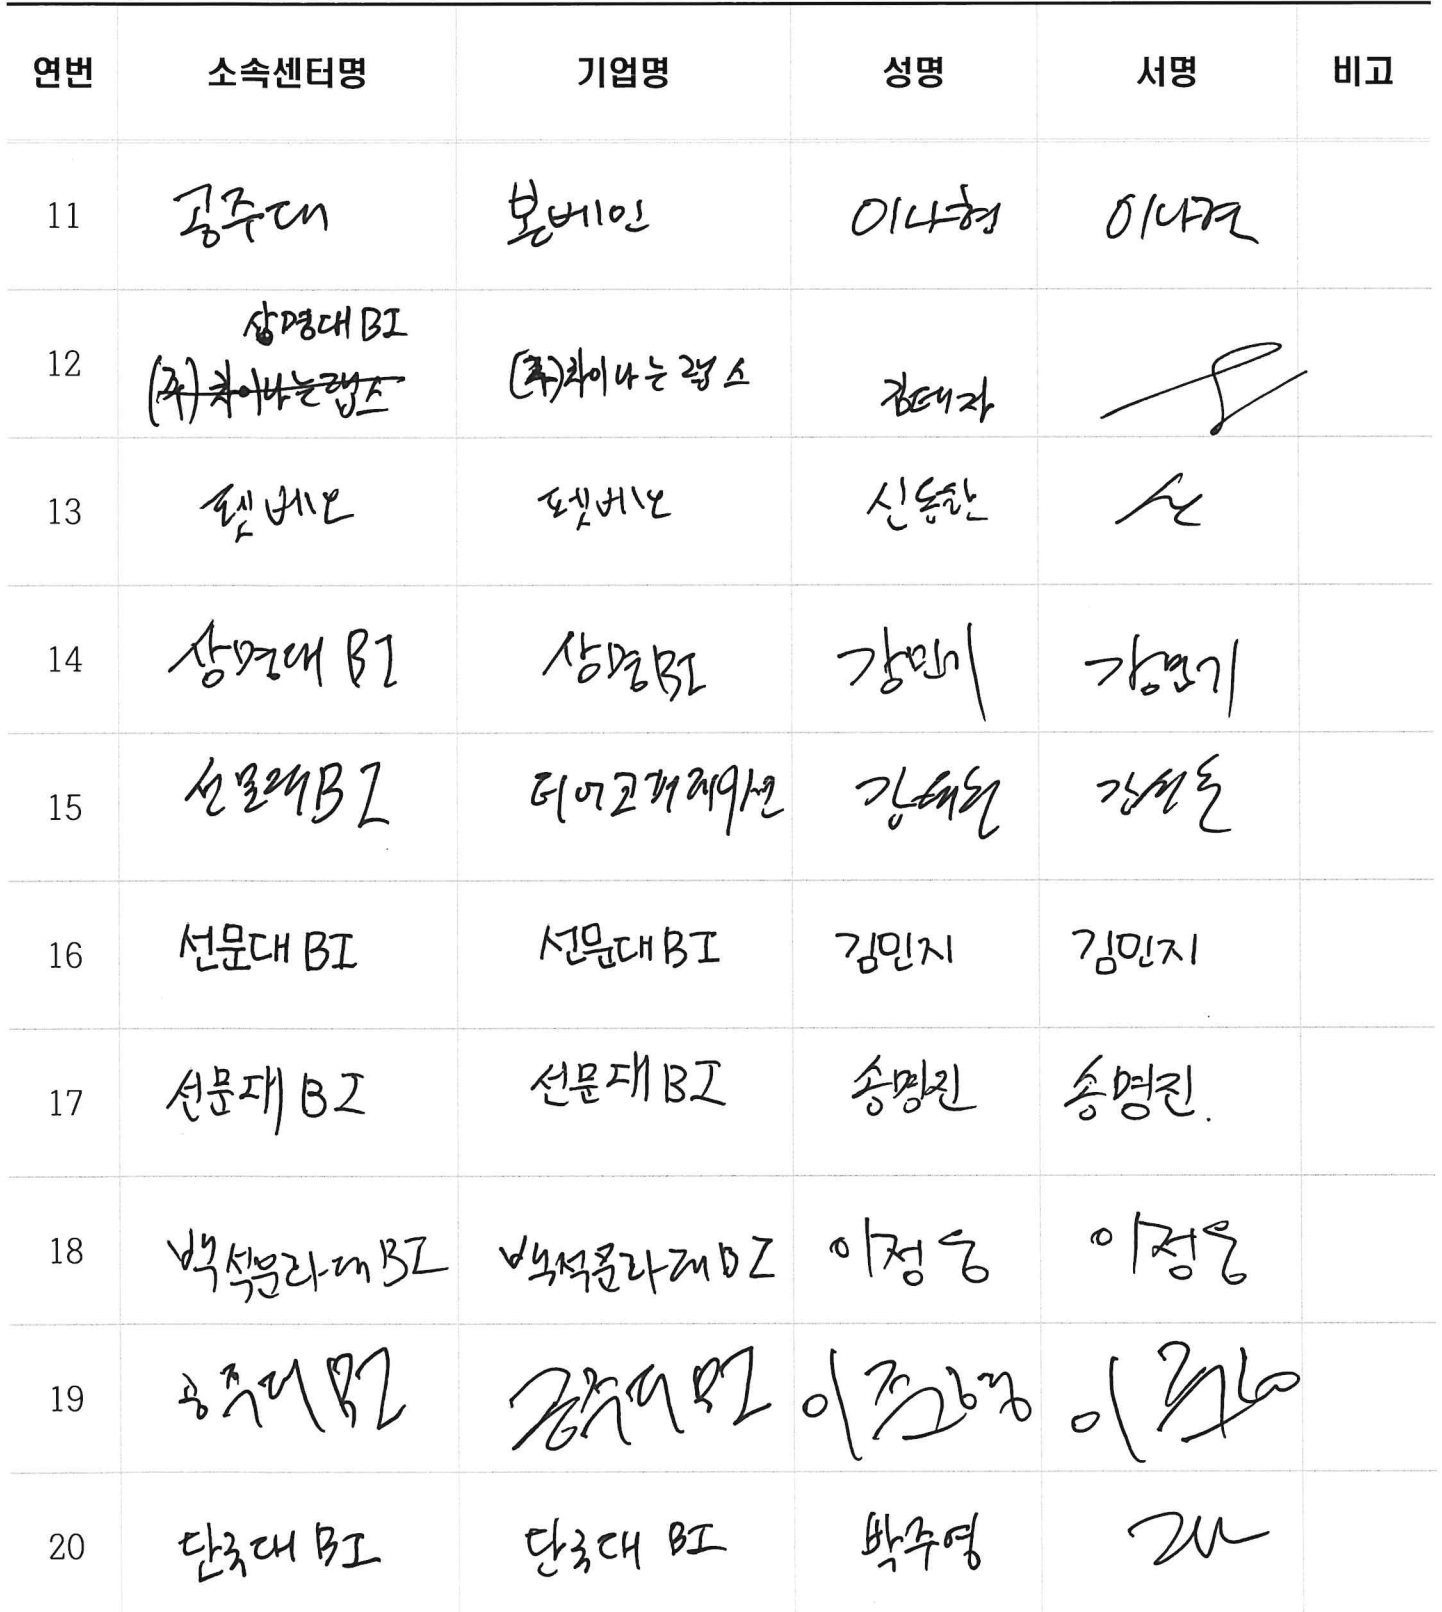 연번 소속센터명 기업명 성명 서명 비고
11 공주대 본베인 이나현 이나현
상명대 BI
12 (주)차이나는랩스 (주)차이나는랩스 김태자
13 펫베오 펫베오 신동한 신
14 상명대 BI 상명BI 강민기 강민기
15 선문대BI 강
16 선문대 BI 선문대 BI 김민지 김민지
17 선문대 BI 선문대 BI 송명진 송명진.
18 백석문화대BI 백석문화대BI 이정웅 이정웅
19 공주대 BI 공주대 BI 이
20 단국대 BI 단국대 BI 박주영